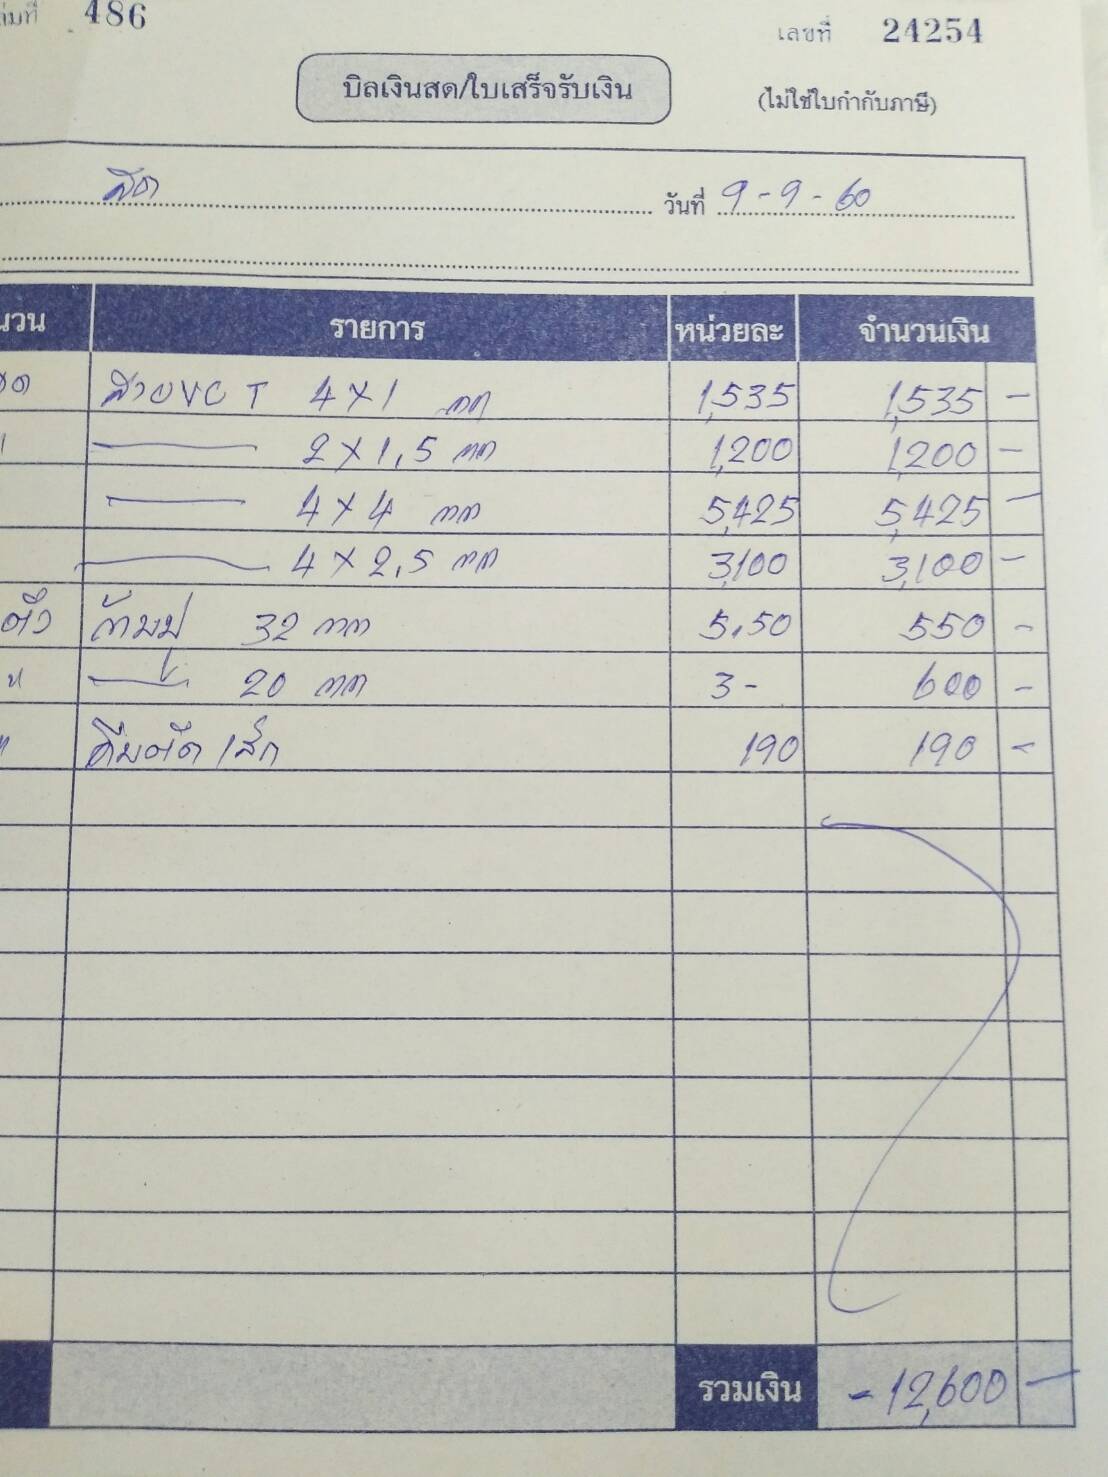 ล่มที่ 486
เลขที่ 24254
บิลเงินสด/ใบเสร็จรับเงิน
(ไม่ใช่ใบกำกับภาษี)
สด วันที่ 9-9-60
นวน รายการ หน่วยละ จำนวนเงิน
สาย VCT 4×1 มม 1,535 1,535 -
2×1,5 มม 1,200 1,200 -
4×4 มม 5,425 5,425 -
4×2,5 มม 3,100 3,100 -
ตัว ก้ามปู 32 มม 5.50 550 -
" 20 มม 3- 600 -
คีมตัดเล็ก 190 190 -
รวมเงิน -12,600 -